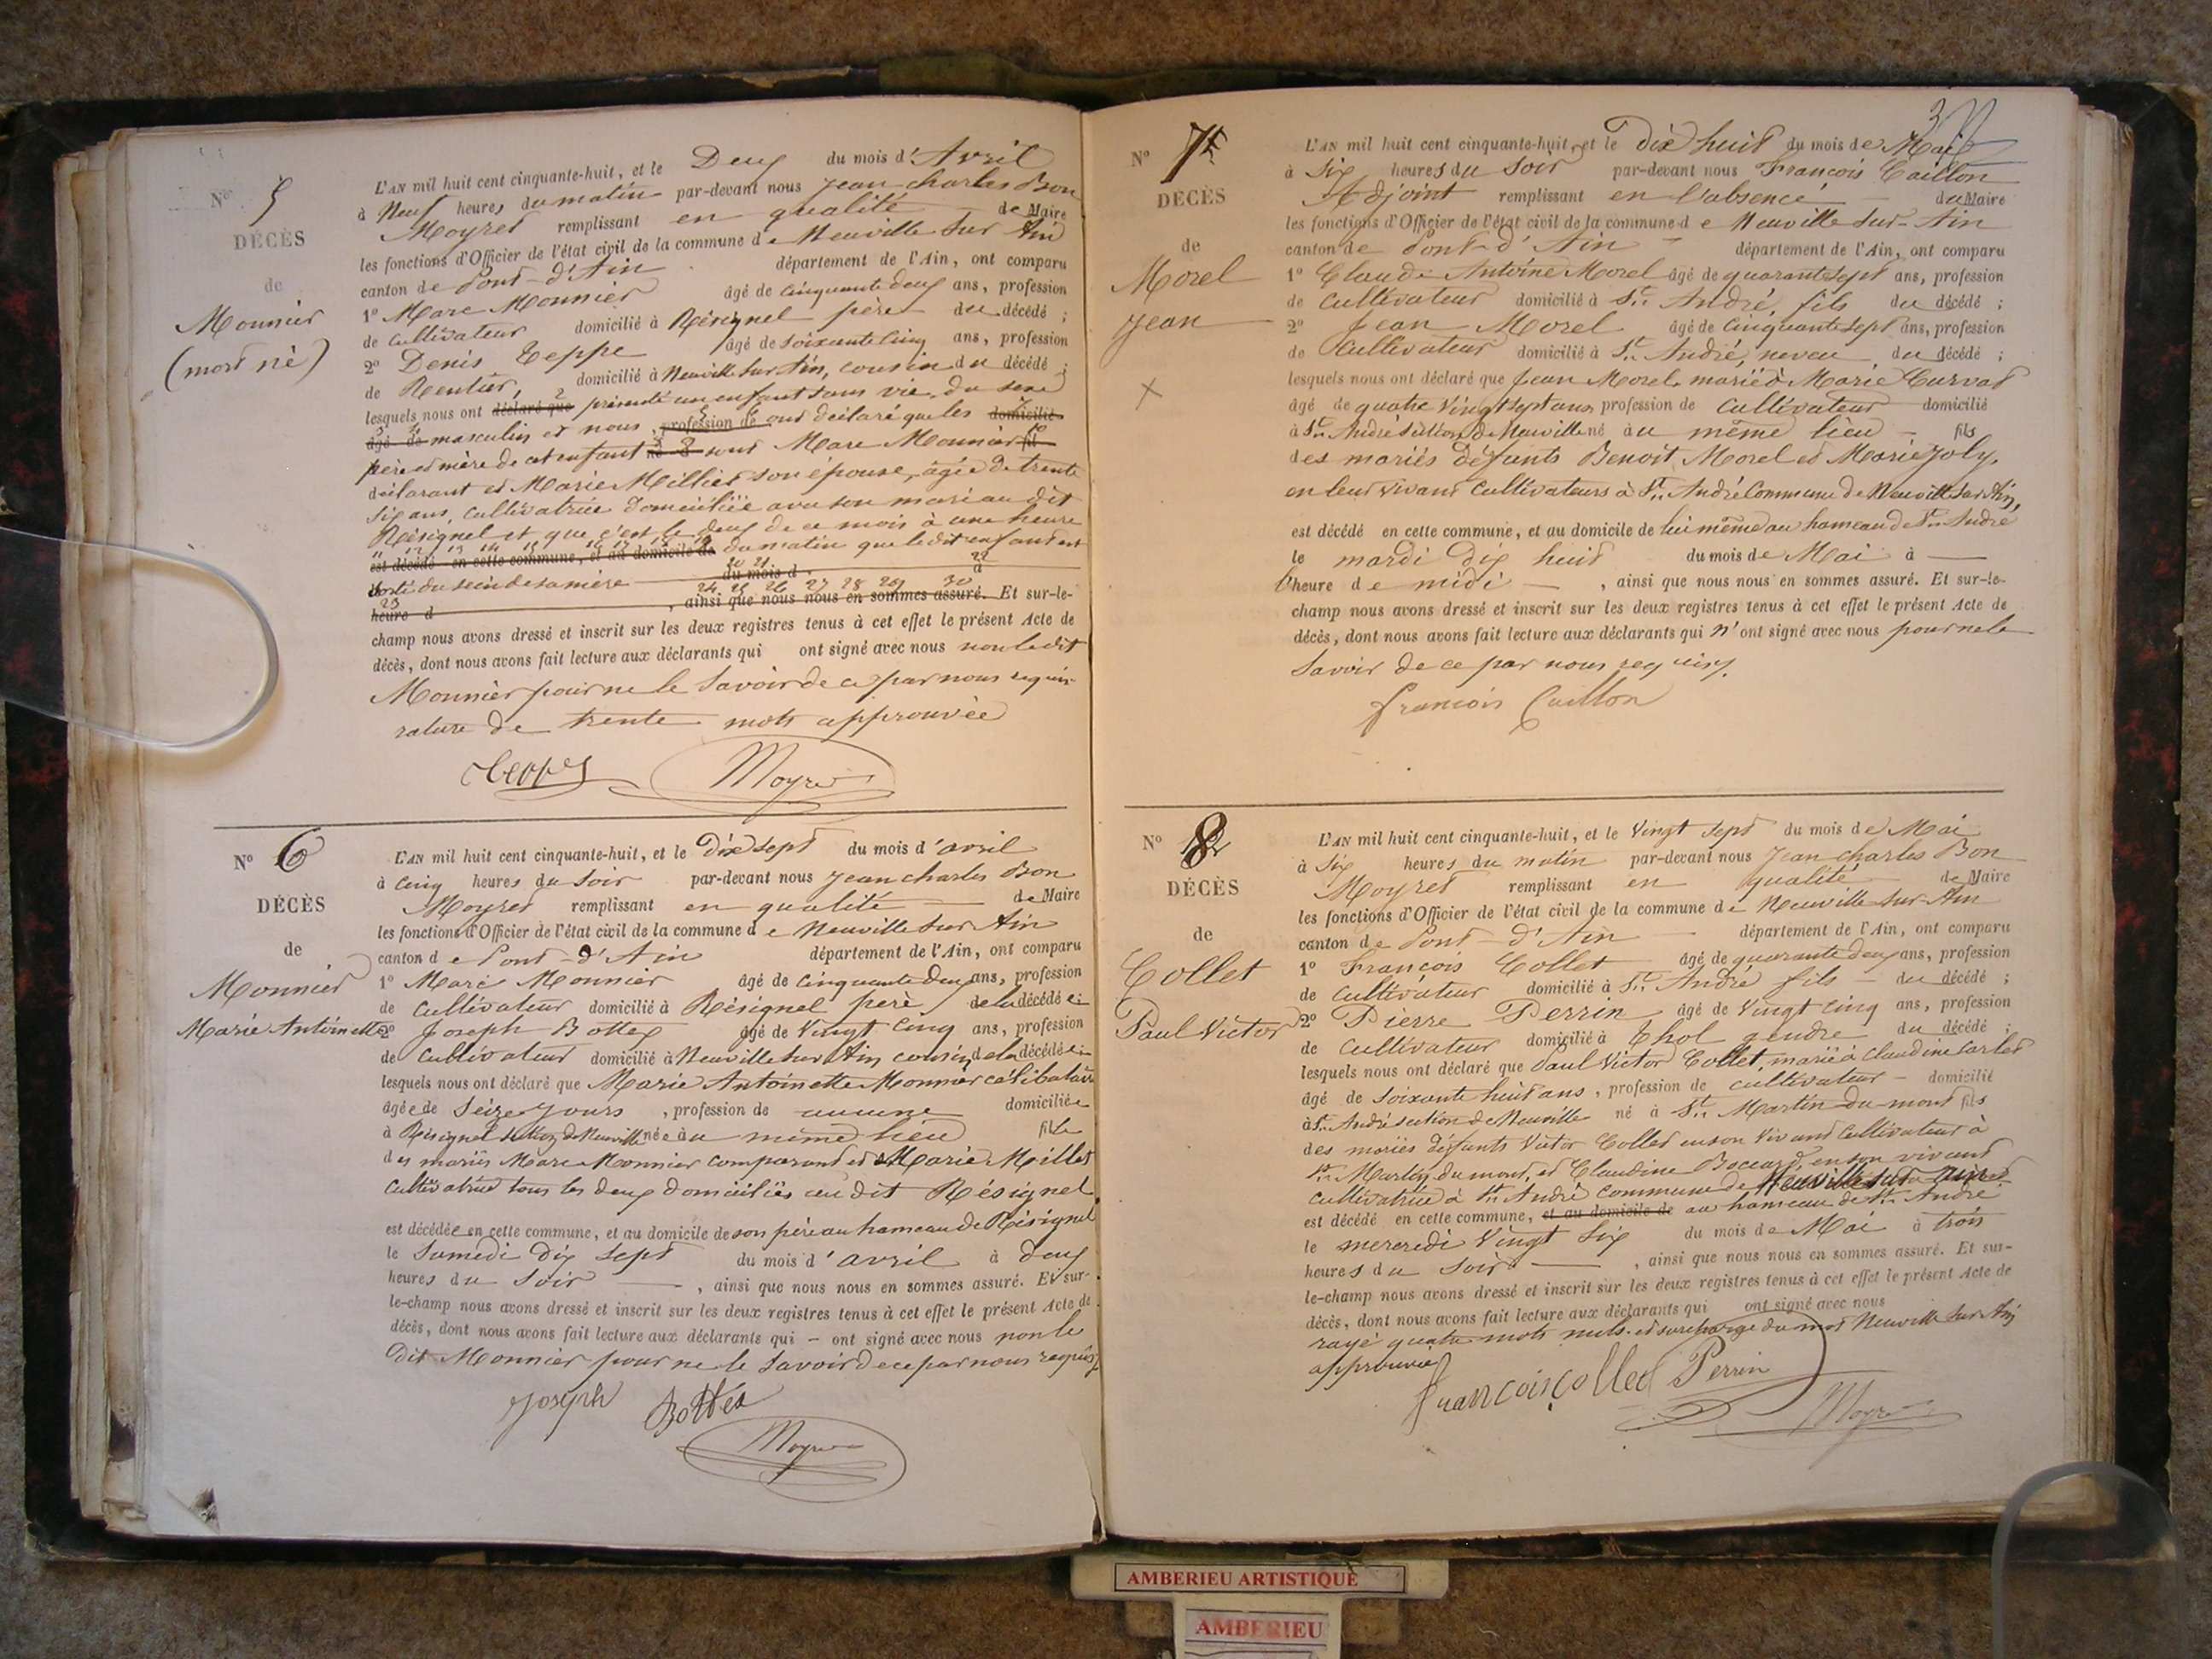 N° 5
DÉCÈS
de
Monnier
(mort né)
L'AN mil huit cent cinquante-huit, et le Deux du mois d'Avril
à Neuf heures du matin par-devant nous Jean Charles Bon
Moyret remplissant en qualité de Maire
les fonctions d'Officier de l'état civil de la commune de Neuville sur Ain
canton de Pont-d'Ain département de l'Ain, ont comparu
1° Marc Monnier âgé de cinquante deux ans, profession
de Cultivateur domicilié à Résignel père du décédé ;
2° Denis Teppe âgé de soixante cinq ans, profession
de Rentier, domicilié à Neuville sur Ain, cousin du décédé ;
lesquels nous ont déclaré que présenté un enfant sans vie du sexe
âgé de masculin et nous profession de ont déclaré que les domicilié
père et mère de cet enfant né à sont Marc Monnier fil
déclarant et Marie Millier son épouse, âgée de trente
six ans, cultivatrice domiciliée avec son mari au dit
Résignel et que c'est le deux de ce mois à une heure
est décédé en cette commune, et au domicile de du matin que le dit enfant est
sorti du sein de sa mère du mois d à
heure d , ainsi que nous nous en sommes assuré. Et sur-le-
champ nous avons dressé et inscrit sur les deux registres tenus à cet effet le présent Acte de
décès, dont nous avons fait lecture aux déclarants qui ont signé avec nous non le dit
Monnier pour ne le savoir de ce par nous requis
rature de trente mots approuvée
Teppe Moyret
N° 6
DÉCÈS
de
Monnier
Marie Antoinette
L'AN mil huit cent cinquante-huit, et le Dix sept du mois d'avril
à cinq heures du soir par-devant nous Jean Charles Bon
Moyret remplissant en qualité de Maire
les fonctions d'Officier de l'état civil de la commune de Neuville sur Ain
canton de Pont-d'Ain département de l'Ain, ont comparu
1° Marc Monnier âgé de cinquante deux ans, profession
de Cultivateur domicilié à Résignel père de la décédée ;
2° Joseph Bottex âgé de Vingt cinq ans, profession
de Cultivateur domicilié à Neuville sur Ain cousin de la décédée ;
lesquels nous ont déclaré que Marie Antoinette Monnier célibataire
âgée de seize jours , profession de aucune domiciliée
à Résignel section de Neuville née au même lieu fille
des mariés Marc Monnier comparant et Marie Millet
Cultivatrice tous les deux domiciliés au dit Résignel
est décédée en cette commune, et au domicile de son père au hameau de Résignel
le samedi dix sept du mois d'avril à deux
heures du soir , ainsi que nous nous en sommes assuré. Et sur-
le-champ nous avons dressé et inscrit sur les deux registres tenus à cet effet le présent Acte de
décès, dont nous avons fait lecture aux déclarants qui – ont signé avec nous non le
dit Monnier pour ne le savoir de ce par nous requis
Joseph Bottex
Moyret
N° 7
DÉCÈS
de
Morel
Jean
L'AN mil huit cent cinquante-huit, et le Dix huit du mois de Mai
à six heures du soir par-devant nous François Caillon
Adjoint remplissant en l'absence du Maire
les fonctions d'Officier de l'état civil de la commune de Neuville sur-Ain
canton de Pont-d'Ain département de l'Ain, ont comparu
1° Claude Antoine Morel âgé de quarante sept ans, profession
de Cultivateur domicilié à St. André, fils du décédé ;
2° Jean Morel âgé de cinquante sept ans, profession
de Cultivateur domicilié à St. André, neveu du décédé ;
lesquels nous ont déclaré que Jean Morel marié à Marie Curvat
âgé de quatre vingt sept ans profession de cultivateur domicilié
à St. André section de Neuville né au même lieu fils
des mariés défunts Benoit Morel et Marie Joly,
en leur vivant Cultivateurs à St. André Commune de Neuville sur Ain,
est décédé en cette commune, et au domicile de lui même au hameau de St. André
le mardi dix huit du mois de Mai à
l'heure de midi , ainsi que nous nous en sommes assuré. Et sur-le-
champ nous avons dressé et inscrit sur les deux registres tenus à cet effet le présent Acte de
décès, dont nous avons fait lecture aux déclarants qui n'ont signé avec nous pour ne le
savoir de ce par nous requis.
françois Caillon
N° 8
DÉCÈS
de
Collet
Paul Victor
L'AN mil huit cent cinquante-huit, et le Vingt sept du mois de Mai
à six heures du matin par-devant nous Jean Charles Bon
Moyret remplissant en qualité de Maire
les fonctions d'Officier de l'état civil de la commune de Neuville sur-Ain
canton de Pont-d'Ain département de l'Ain, ont comparu
1° François Collet âgé de quarante deux ans, profession
de Cultivateur domicilié à St. André fils du décédé ;
2° Pierre Perrin âgé de Vingt cinq ans, profession
de Cultivateur domicilié à Thol gendre du décédé ;
lesquels nous ont déclaré que Paul Victor Collet, marié à Claudine
âgé de soixante huit ans, profession de cultivateur – domicilié
à St. André section de Neuville né à St. Martin du mont fils
des mariés défunts Victor Collet en son vivant Cultivateur à
St. Martin du mont, et Claudine Boccard, en son vivant
cultivatrice à St. André commune de Neuville sur Ain
est décédé en cette commune, et au domicile de au hameau de St. André
le mercredi Vingt six du mois de Mai à trois
heures du soir , ainsi que nous nous en sommes assuré. Et sur-
le-champ nous avons dressé et inscrit sur les deux registres tenus à cet effet le présent Acte de
décès, dont nous avons fait lecture aux déclarants qui ont signé avec nous
rayé quatre mots nuls et surcharge du mot Neuville sur Ain
approuvée
françois Collet Perrin
Moyret
AMBERIEU ARTISTIQUE
AMBERIEU